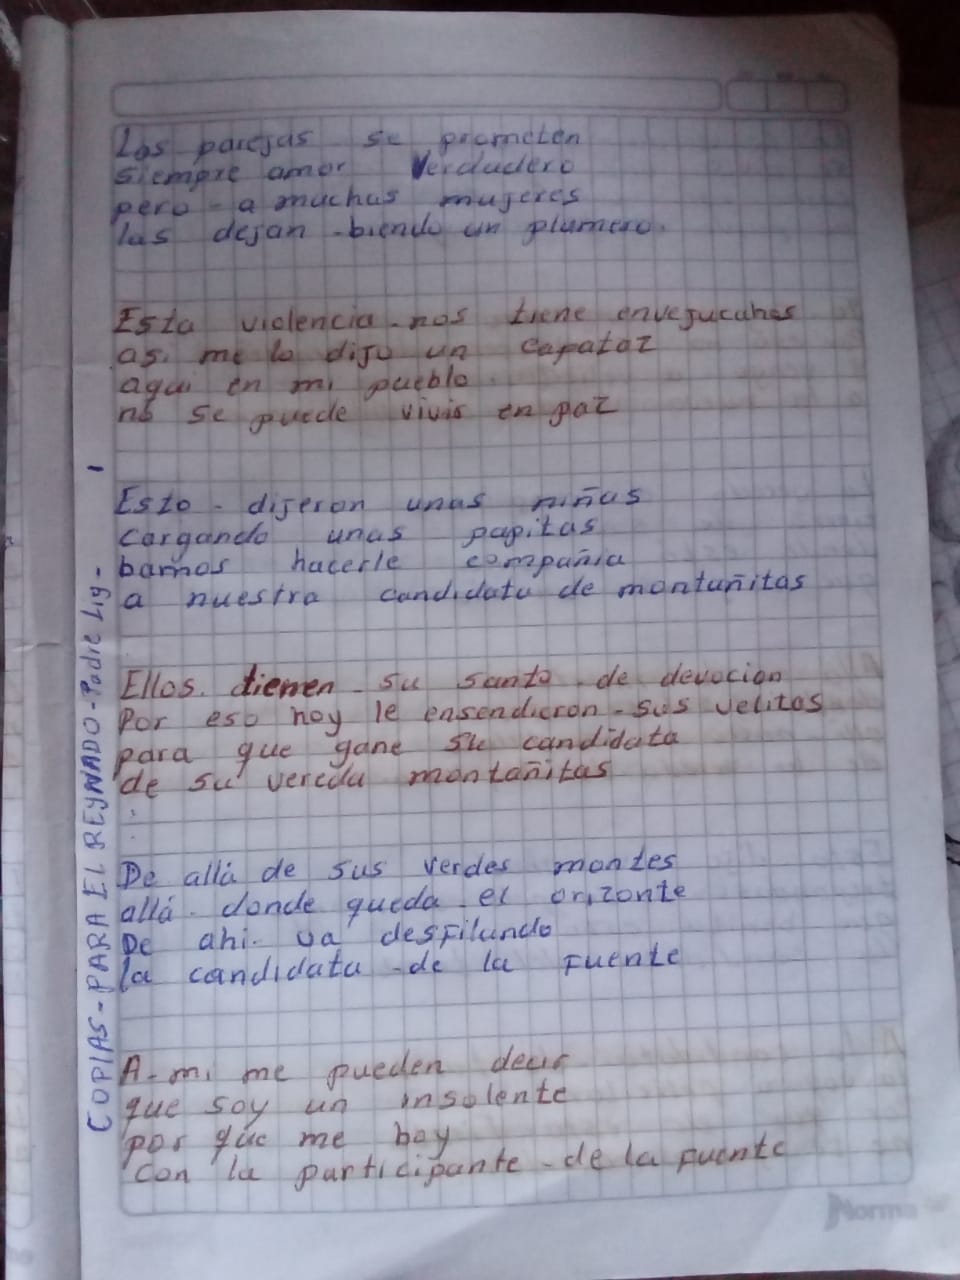 Las parejas se prometen
siempre amor verdadero
pero - a muchas mujeres
las dejan - biendo un plumero.
Esta violencia - nos tiene
asi me lo dijo un capataz
aqui en mi pueblo
no se puede vivir en paz
Esto - dijeron unas niñas
cargando unas papitas
bamos hacerle compañia
a nuestra candidata de montañitas
Ellos. tienen - su santo - de devocion
Por eso hoy le ensendieron - sus velitas
para que gane su candidata
de su vereda montañitas
De allá de sus verdes montes
allá - donde queda el orizonte
De ahi - va desfilando
la candidata - de la Fuente
A - mi me pueden decir
que soy un insolente
por que me boy
con la participante - de la fuente
COPIAS - PARA EL REYNADO - Padre Lig - 1
Norma